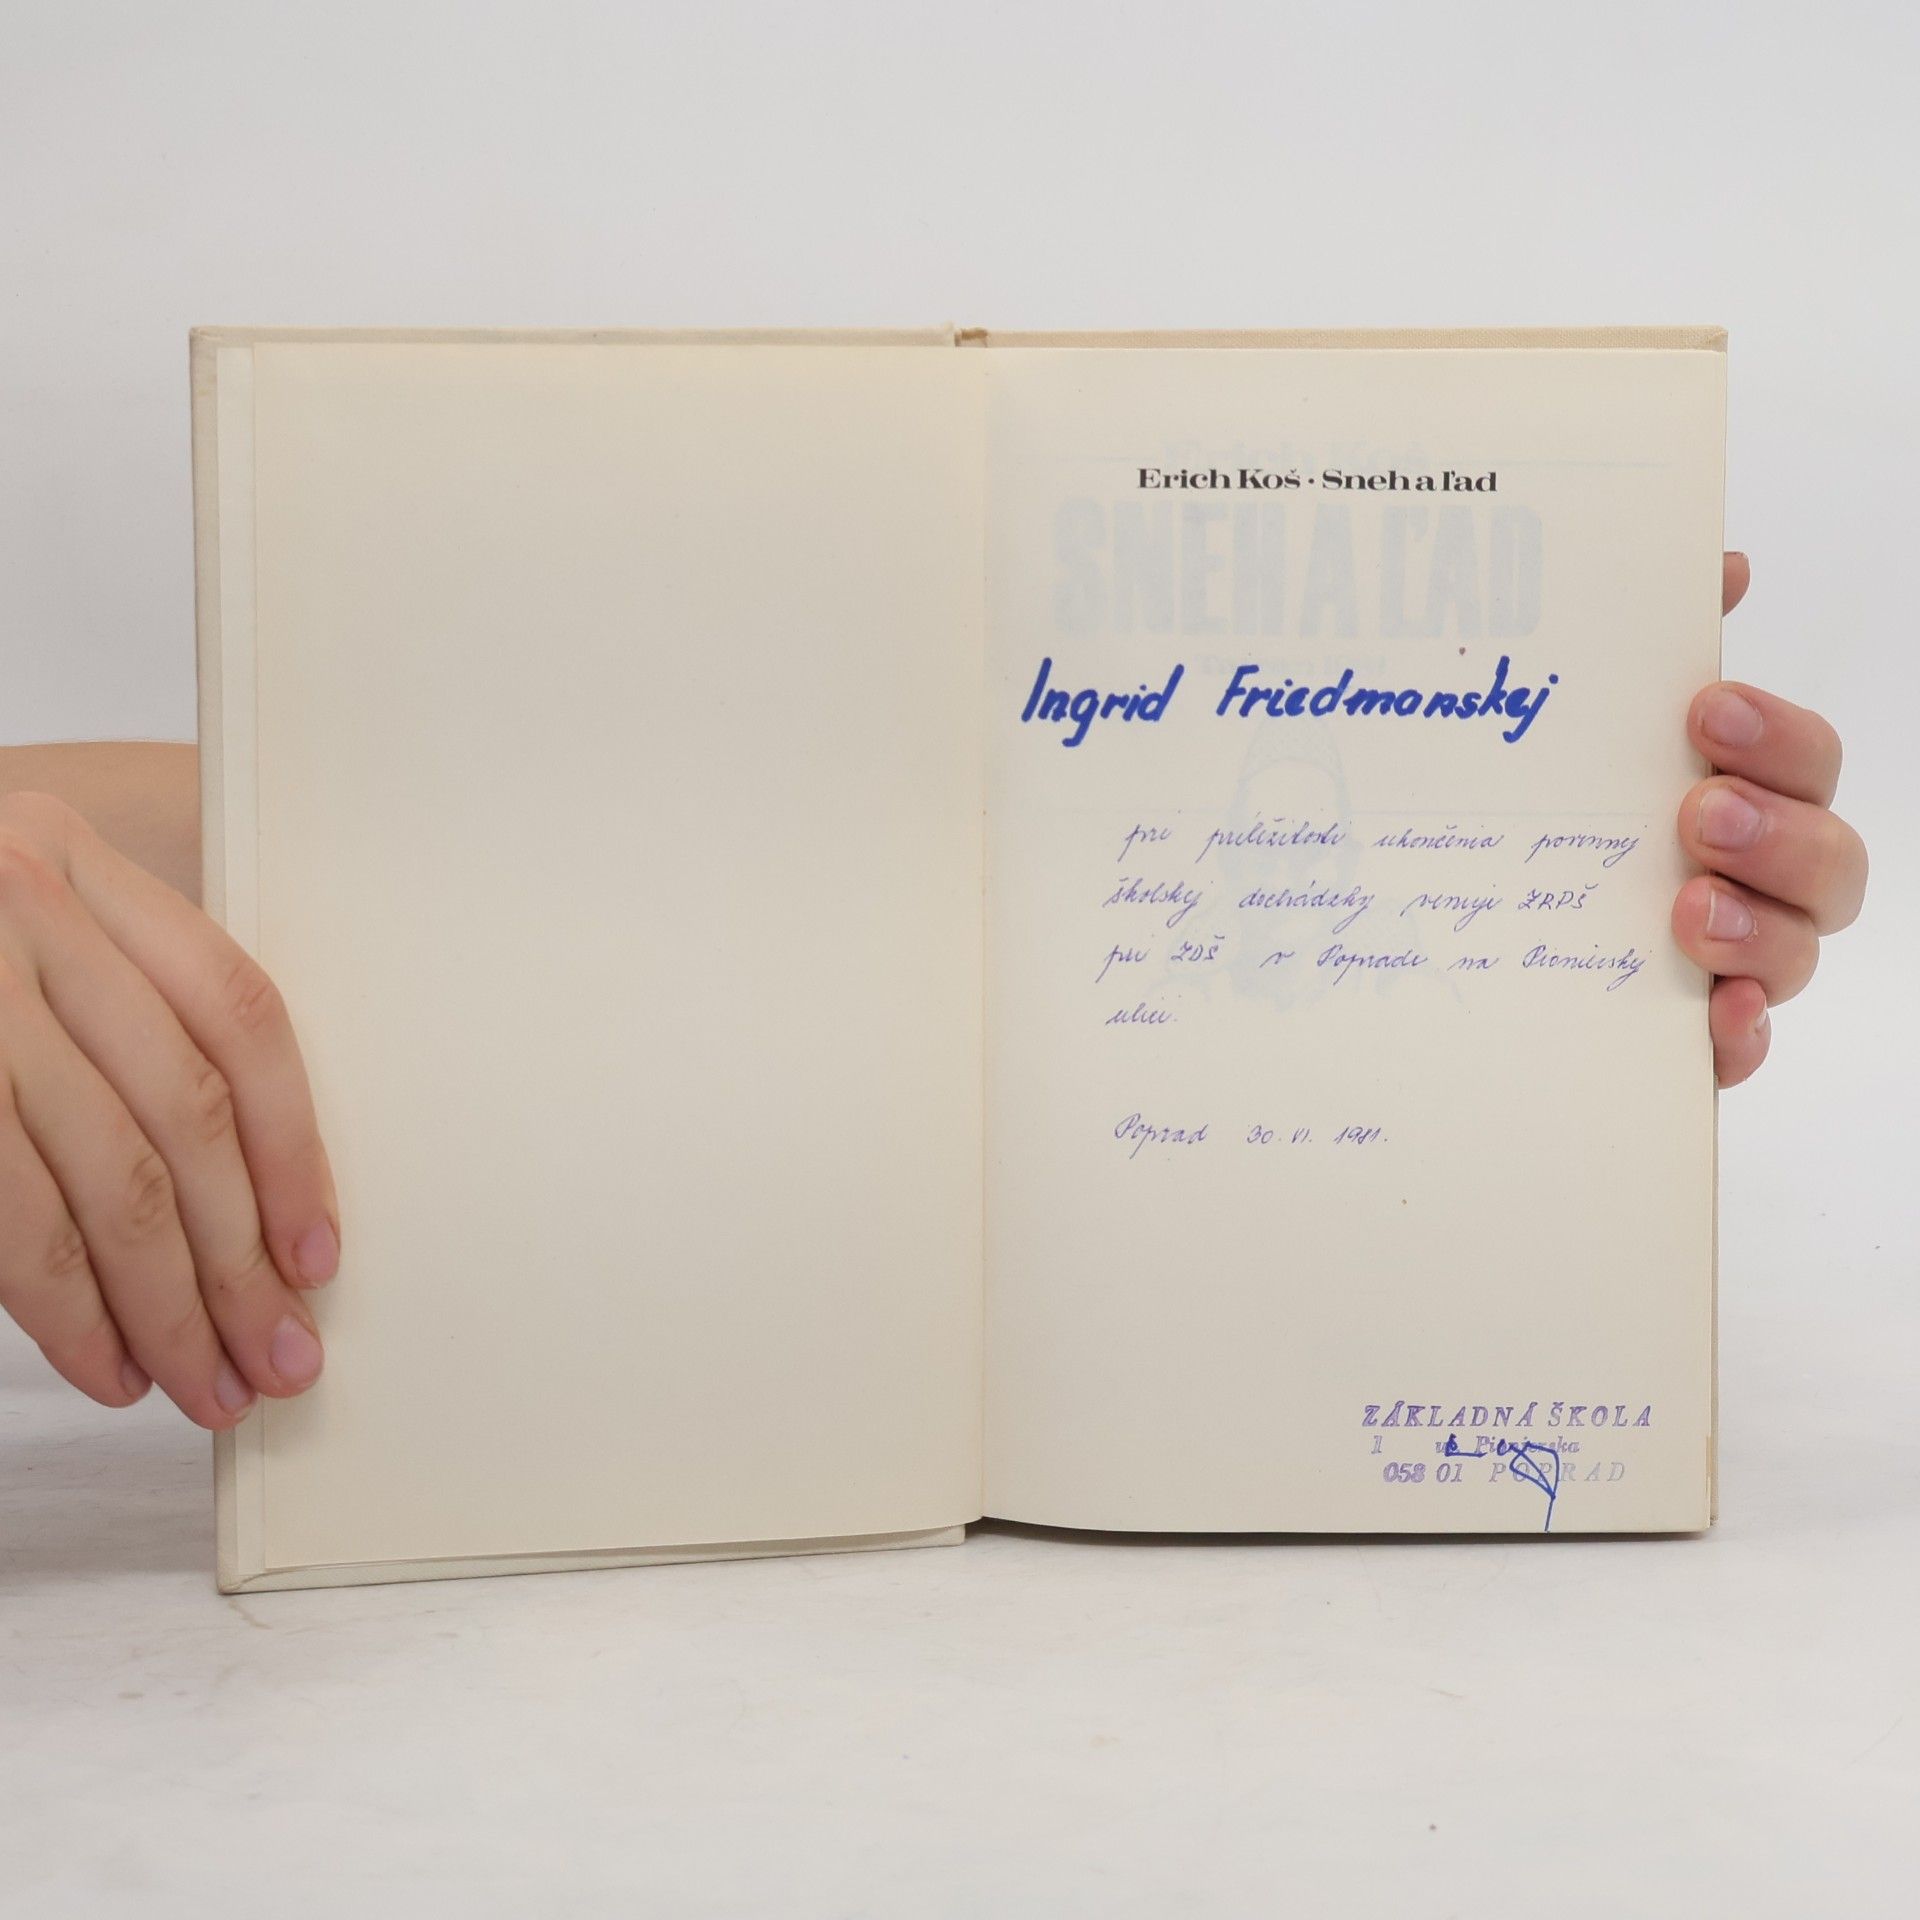 Erich Koš · Sneh a ľad
SNEH A ĽAD
Ingrid Friedmanskej
pri príležitosti ukončenia povinnej
školskej dochádzky venuje ZRPŠ
pri ZDŠ v Poprade na Pionierskej
ulici.
Poprad 30. VI. 1981.
ZÁKLADNÁ ŠKOLA
1 ul. Pionierska
058 01 POPRAD